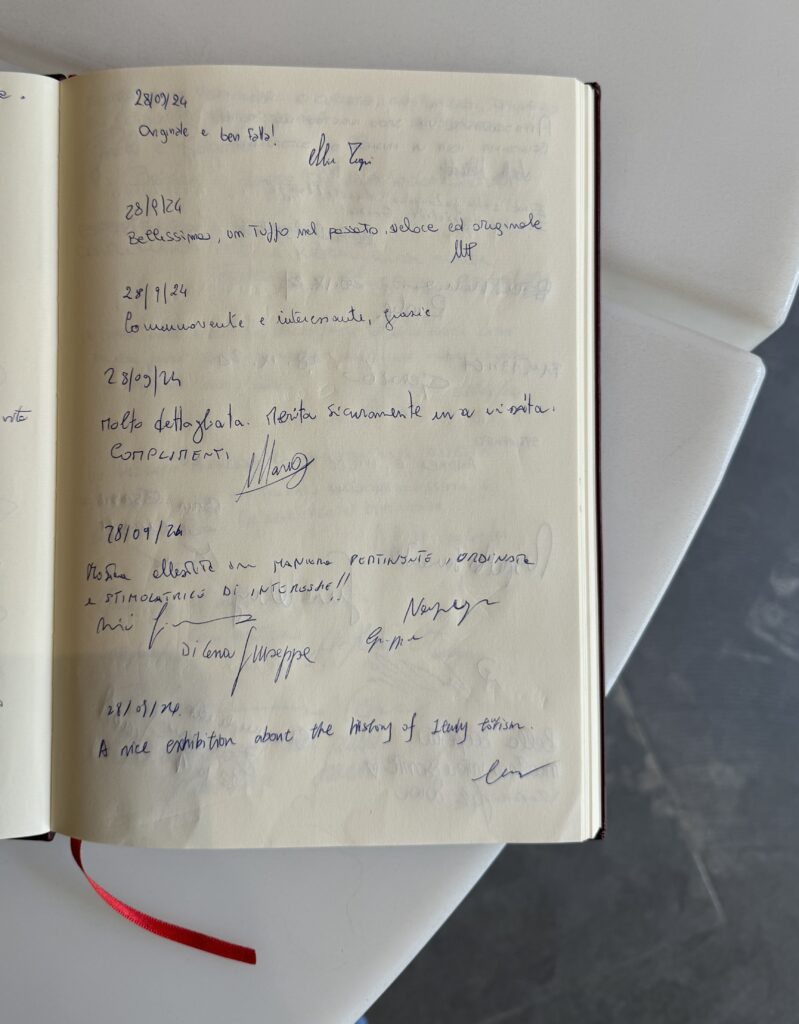 28/09/24
Originale e ben fatta!
28/9/24
Bellissima, un Tuffo nel passato, veloce ed originale
MP
28/9/24
Commovente e interessante, grazie
28/09/24
Molto dettagliata. Merita sicuramente una visita.
COMPLIMENTI
Mario
28/09/24
Mostra allestita in MANIERA PERTINENTE, ORDINATA
e STIMOLATRICE DI INTERESSE!!
Di Cena Giuseppe
28/09/24.
A nice exhibition about the history of Italy tourism.